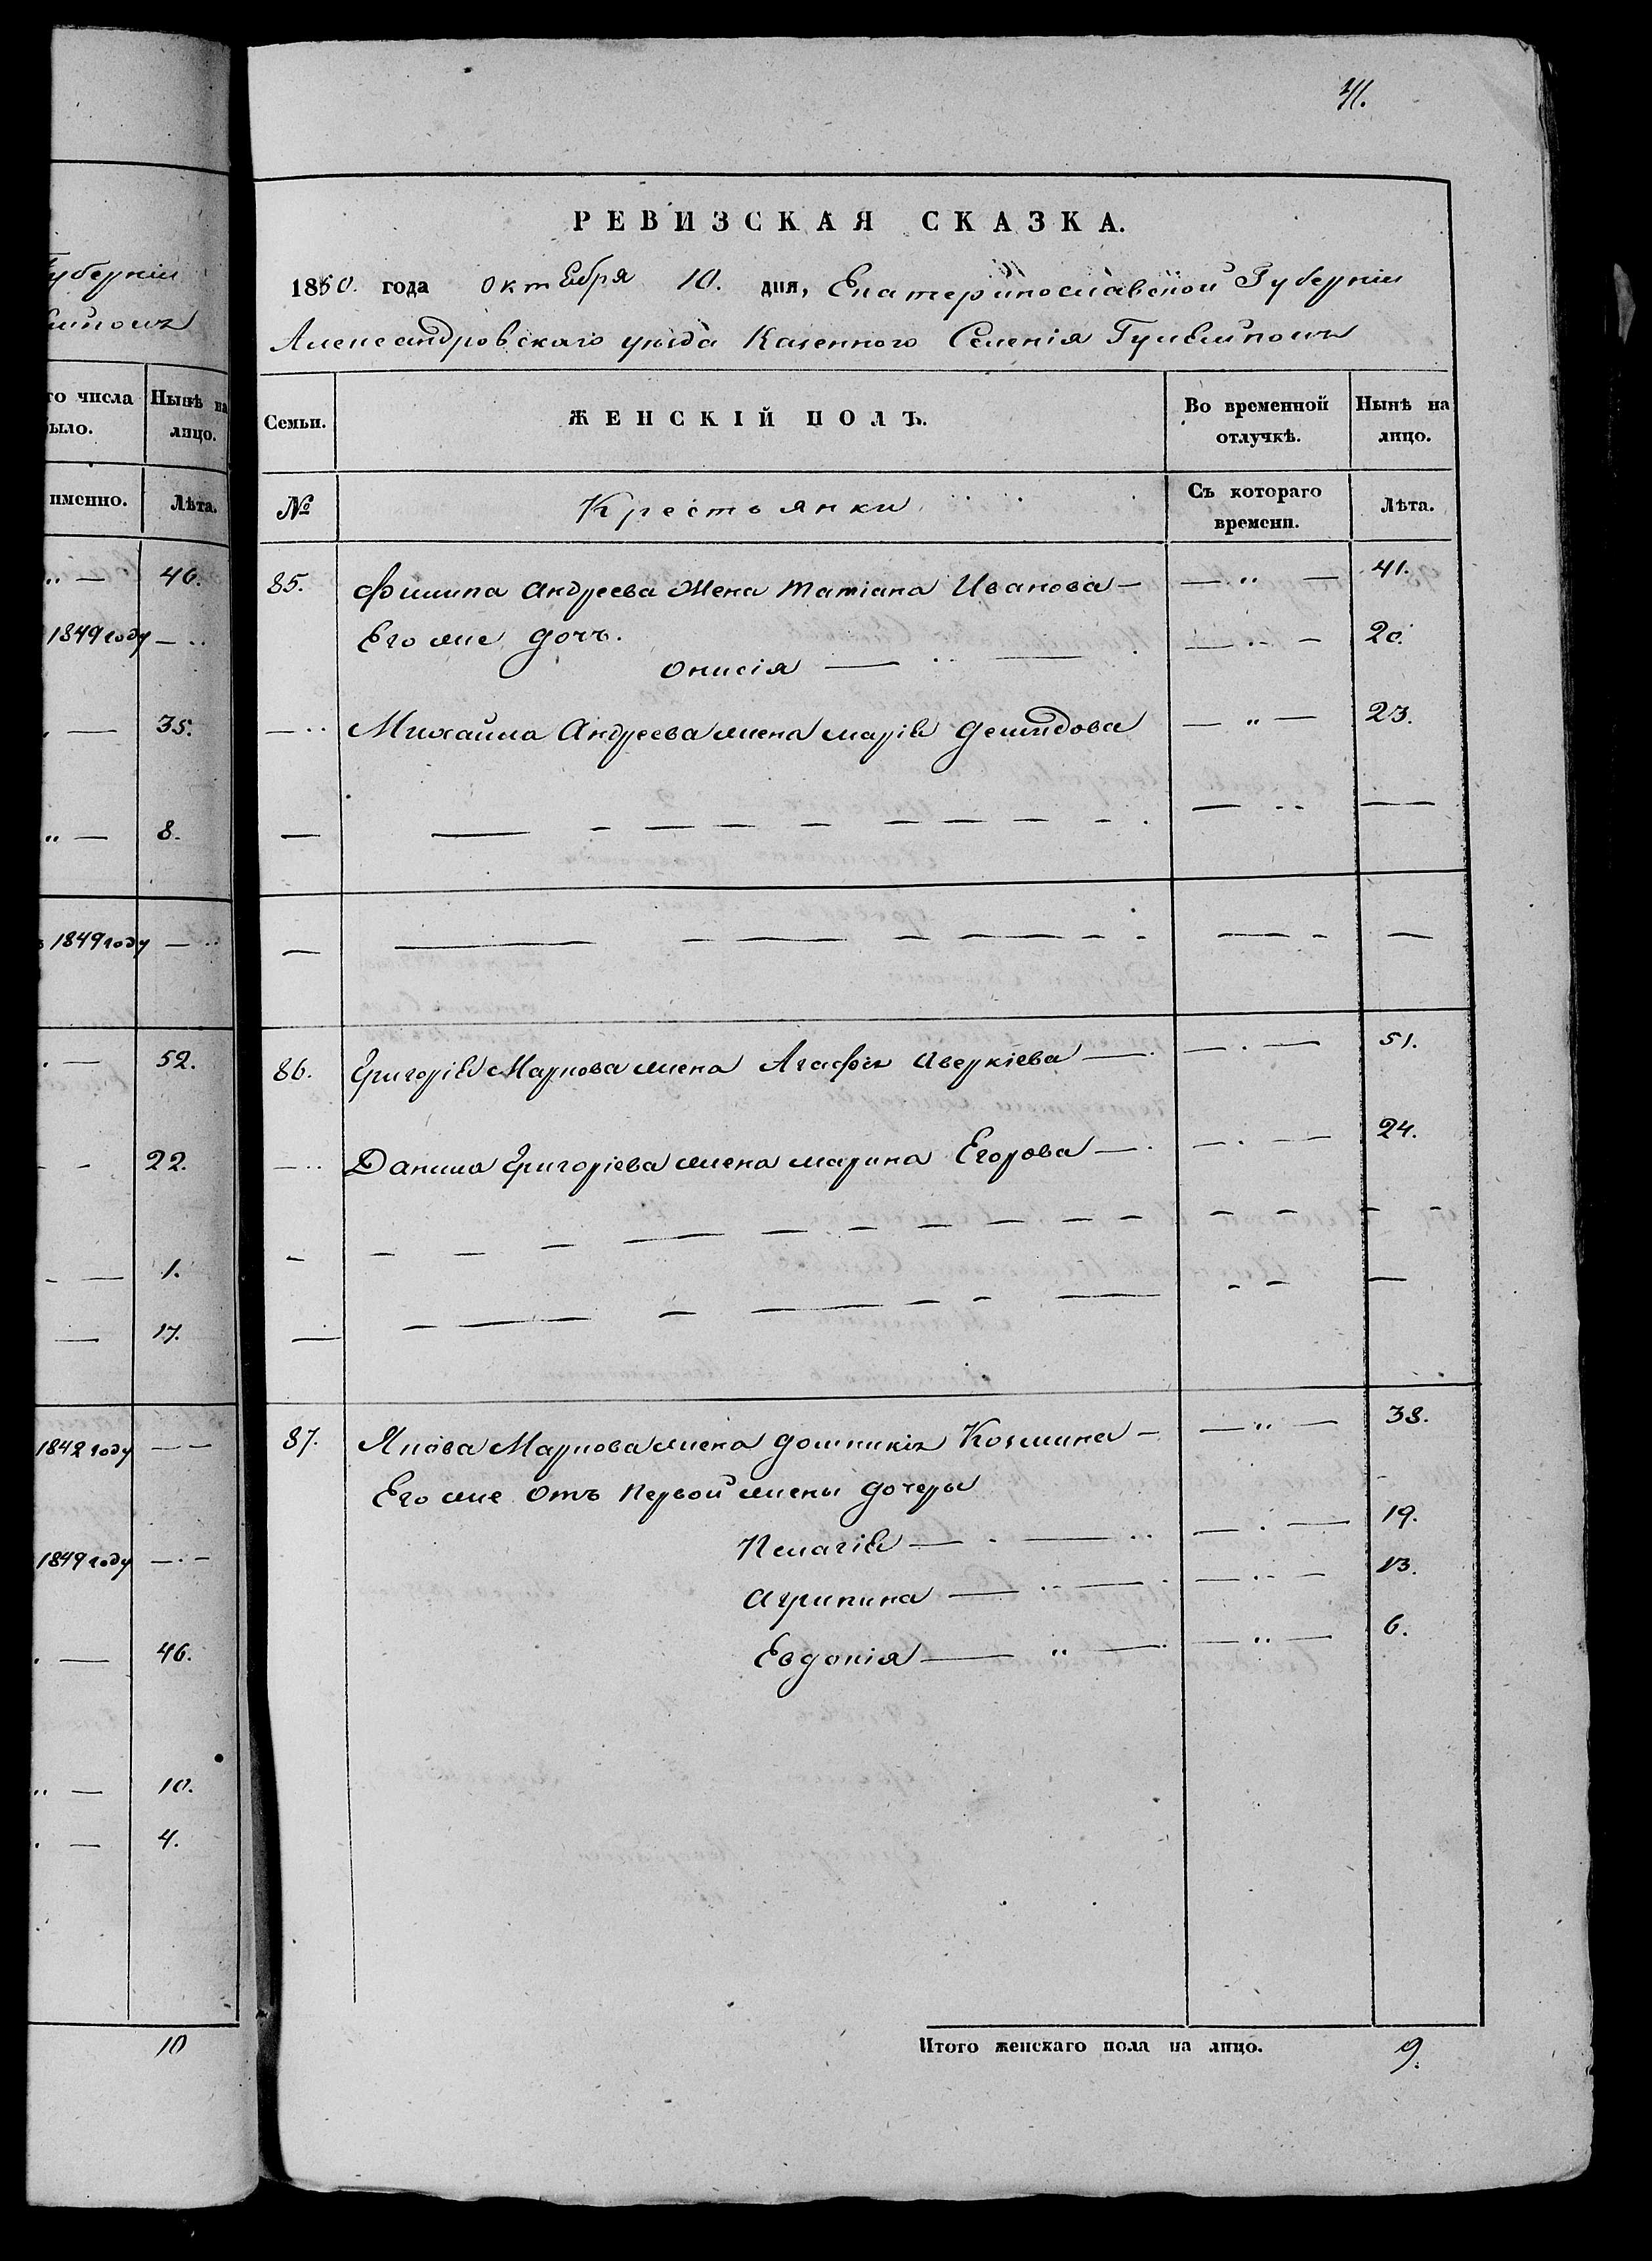 Губерніи
го числа
было.
Нынѣ на
лицо.
именно.
Лѣта.
" — 46.
1849 году — "
— 35.
" — 8.
1849 году — "
— 52.
— 22.
— 1.
— 17.
1842 году — —
1849 году — —
— 46.
" — 10.
— 4.
10
41.
РЕВИЗСКАЯ СКАЗКА.
1850. года Октября 10. дня, Екатеринославской Губерніи
Александровскаго уѣзда Казенного Селенія
Семьи.
ЖЕНСКІЙ ПОЛЪ.
Во временной
отлучкѣ.
Нынѣ на
лицо.
№
Крестьянки
Съ котораго
времени.
Лѣта.
85. Филипа Андреева Жена Татіана Иванова — — " — 41.
Его же дочь.
Онисія — " — — " — 20.
— " Михайла Андреева жена Марія Демидова — " — 23.
86. Григорія Маркова жена Агафія Аверкіева — — . — 51.
— " Данила Григоріева жена Марина Егорова — — . — 24.
87. Якова Маркова жена Домникія Козмина — — " — 38.
Его же отъ первой жены дочеры
Пелагія — . — " — . — 19.
Агрипина — " — — " — 13.
Евдокія — " — — " — 6.
Итого женскаго пола на лицо. 9.